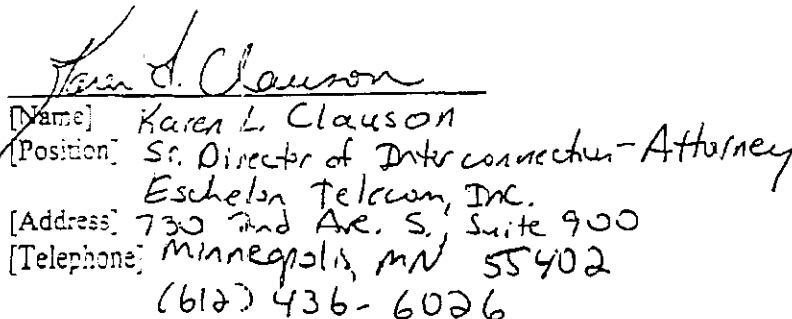 Karen L. Clauson
[Name] Karen L. Clauson
[Position] Sr. Director of Interconnection-Attorney
Eschelon Telecom, Inc.
[Address] 730 2nd Ave. S., Suite 900
[Telephone] Minneapolis, MN 55402
(612) 436-6026